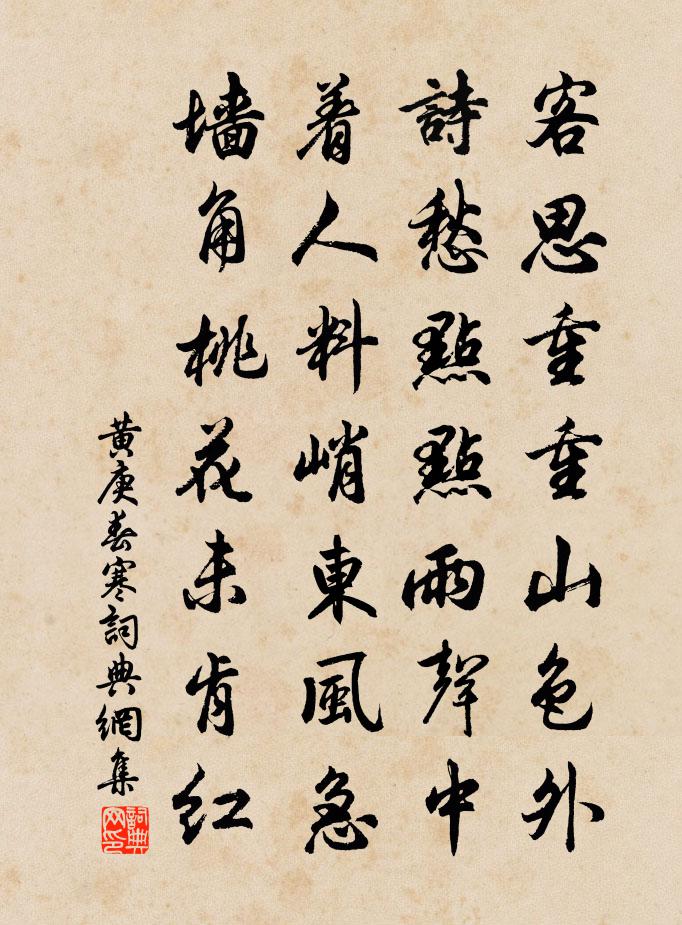 客思重重山色外
詩愁點點雨聲中
着人料峭東風急
墙角桃花未肯红
黄庚春寒詞典網集
詞典网印